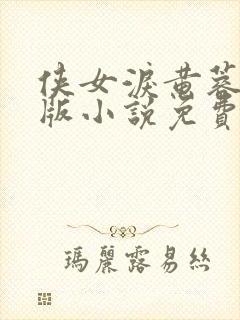 俠女淚黃蓉
版小說免費
瑪麗露易絲